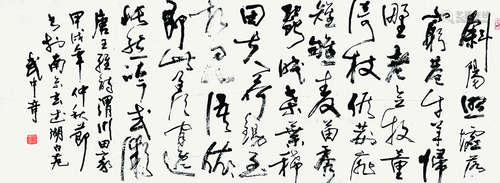 斜陽照墟落
窮巷牛羊歸
野老念牧童
倚杖候荊扉
雉雊麥苗秀
蠶眠桑葉稀
田夫荷鋤至
相見語依依
即此羨閒逸
悵然吟式微
唐王維詩渭川田家
甲戌年仲秋節
於南京玄武湖白苑
武中奇